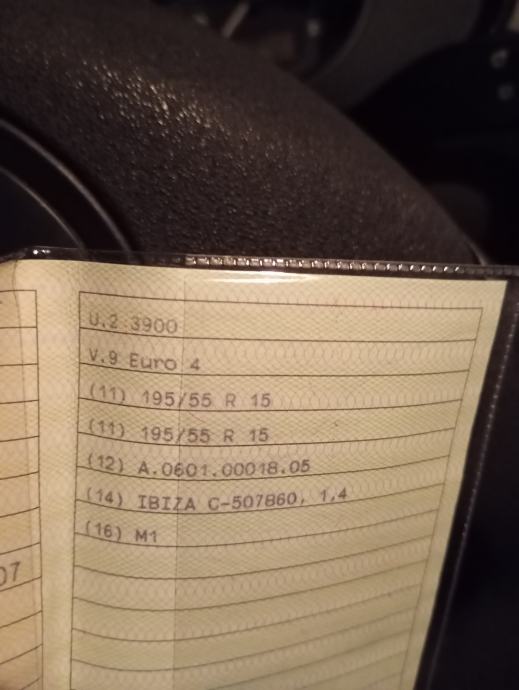 U.2 3900
V.9 Euro 4
(11) 195/55 R 15
(11) 195/55 R 15
(12) A.0601.00018.05
(14) IBIZA C-507860, 1,4
(16) M1
07